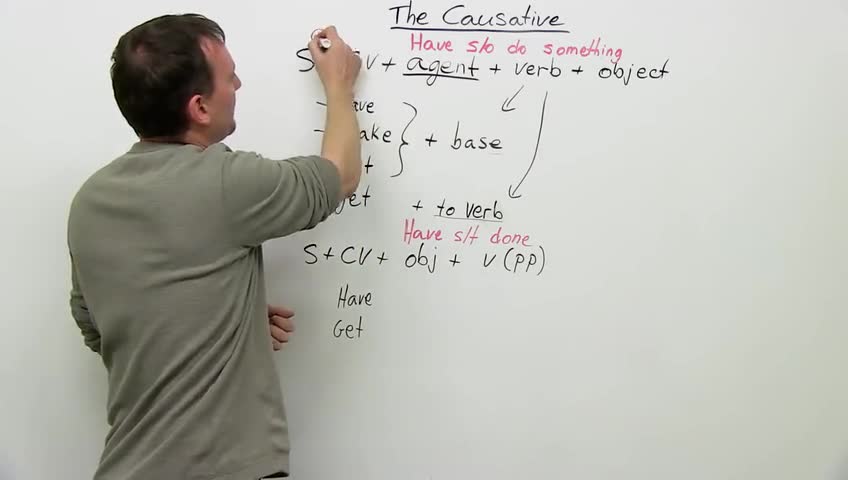 The Causative
Have s/o do something
S V + agent + verb + object
+ base
get + to verb
Have s/t done
S + CV + obj + V (PP)
Have
Get